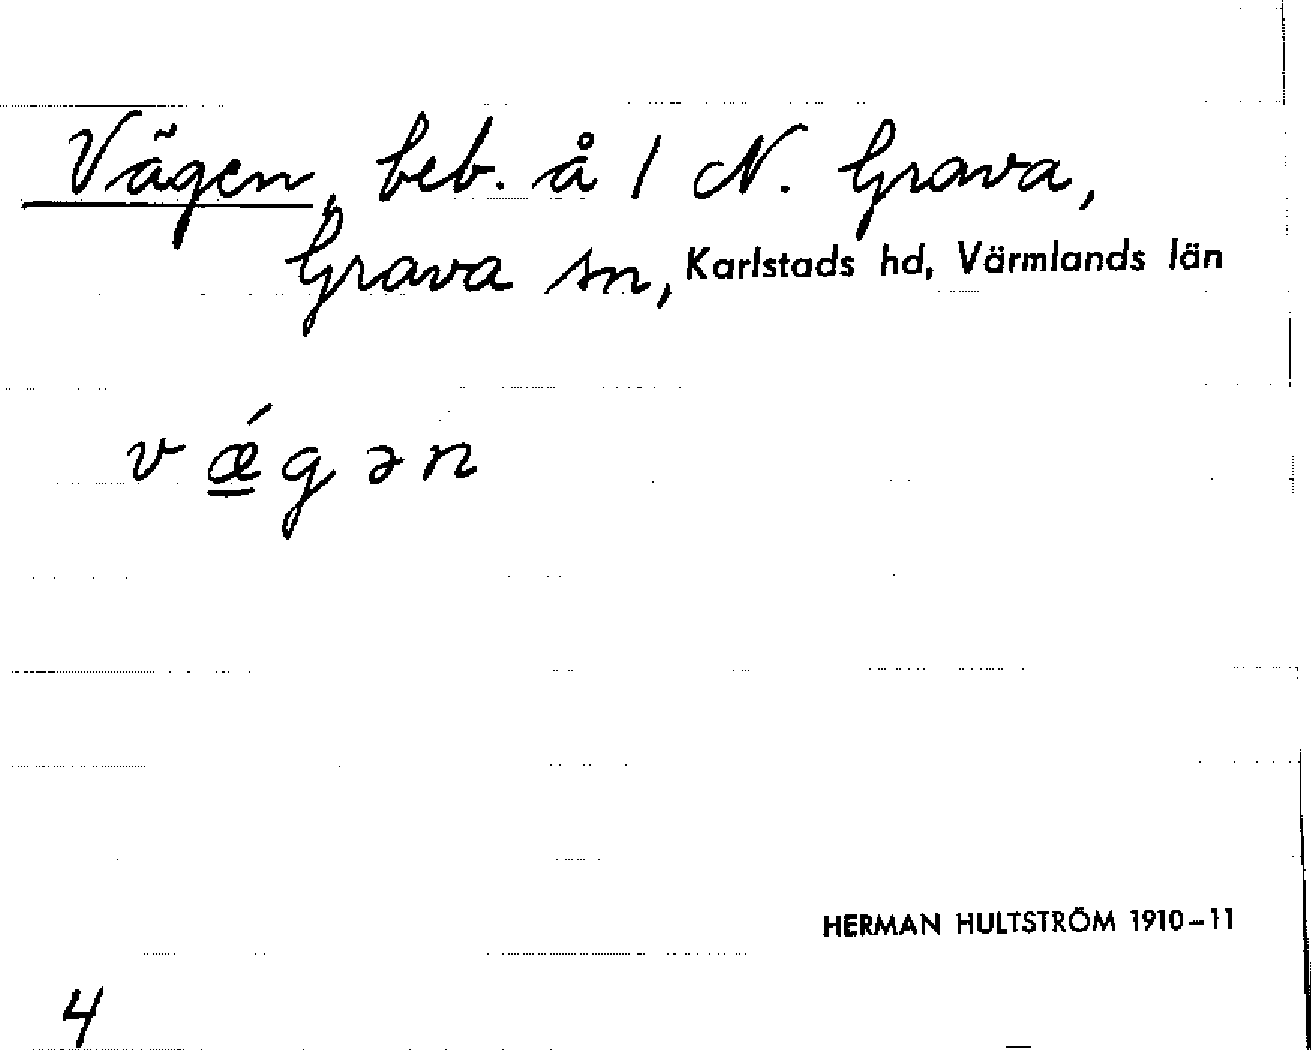 Vägen, beb. å 1 N. Grava,
Grava sn, Karlstads hd, Värmlands län
v ǽ g ə n
HERMAN HULTSTRÖM 1910-11
4